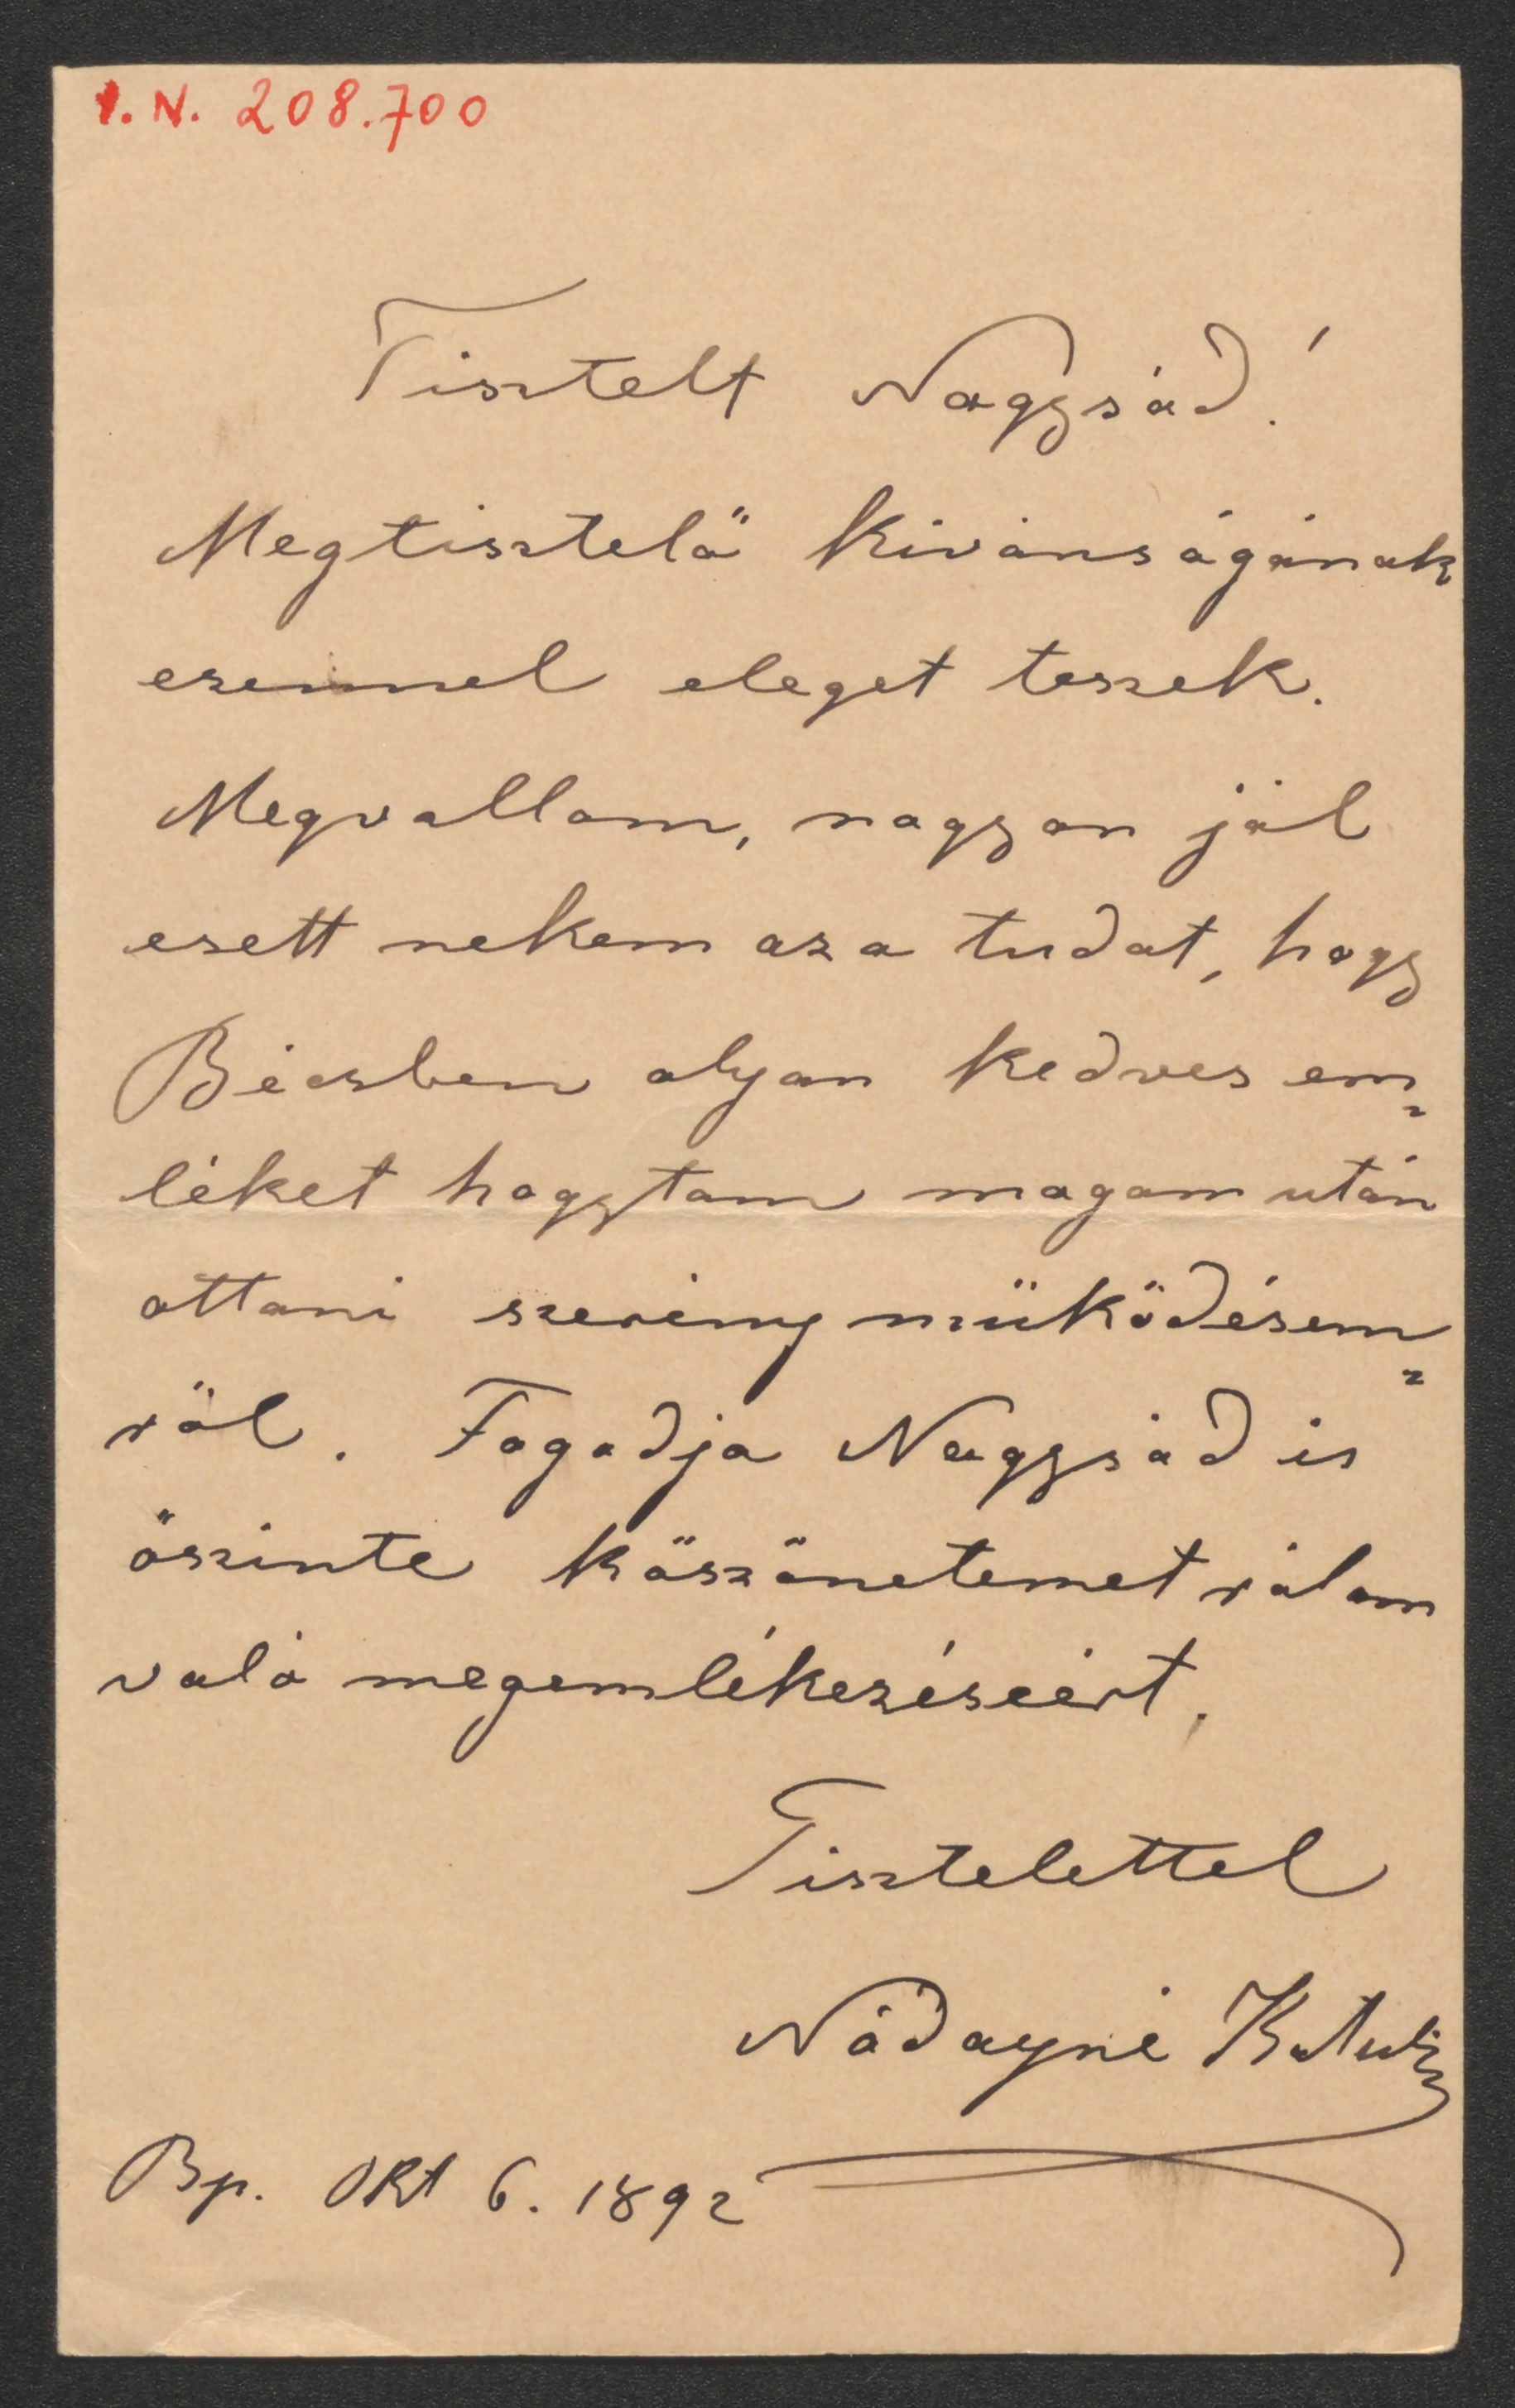 I. N. 208.700
Tisztelt Nagysád!
Megtisztelő kivánságának
ezennel eleget teszek.
Megvallom, nagyon jól
esett nekem az a tudat, hogy
Bécsben olyan kedves em=
léket hagytam magam után
ottani szerény müködésem=
ről. Fogadja Nagysád is
őszinte köszönetemet rólam
való megemlékezéseért.
Tisztelettel
Nádayné
Bp. Okt 6. 1892